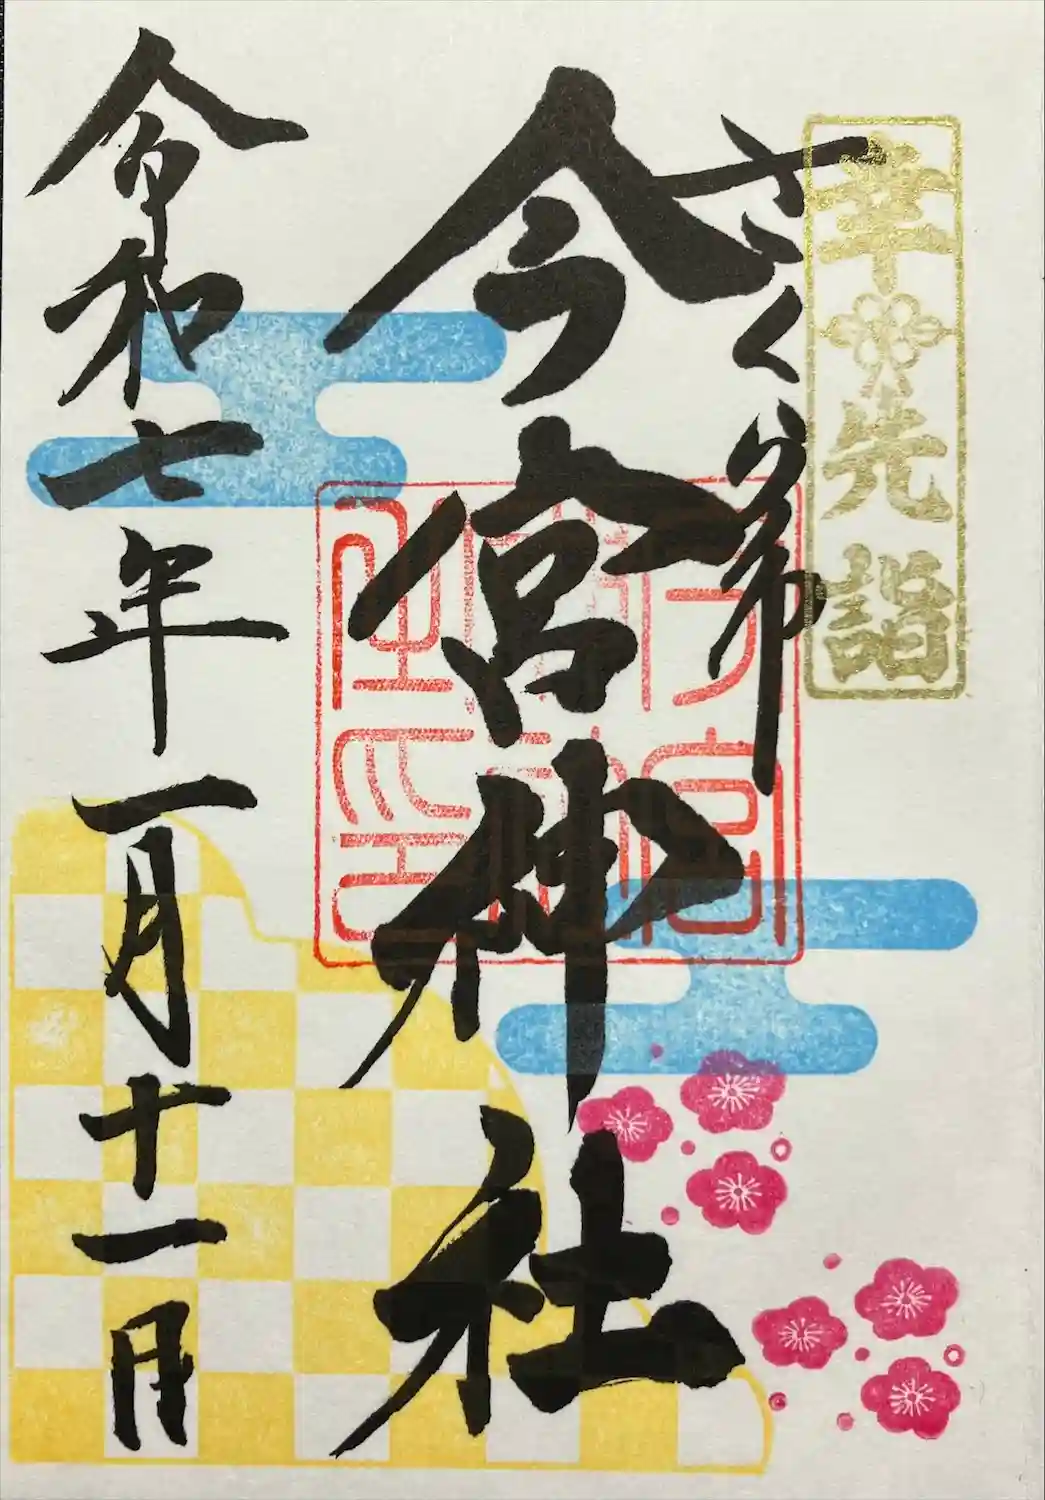 幸先詣
さくら市
今宮神社
令和七年一月十一日